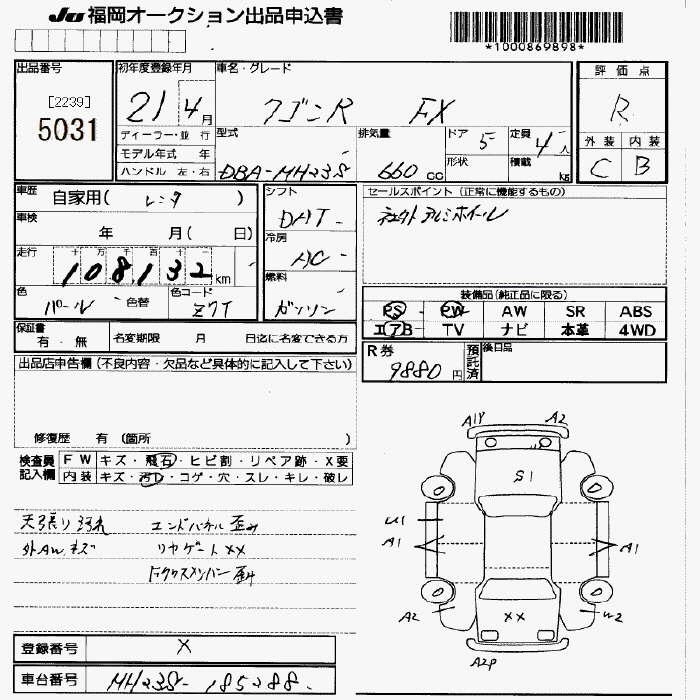 JU 福岡オークション出品申込書
*1000869898*
出品番号
[2239]
5031
初年度登録年月
21 4月
ディーラー・並行
モデル年式 年
ハンドル 左・右
車名・グレード
ワゴンR FX
型式
DBA-MH23S
排気量
660 cc
ドア 5
形状
定員 4人
積載 kg
評価点
R
外装 内装
C B
車歴 自家用( レンタ )
車検
年 月( 日)
走行 十 万 千 百 十
108,132 km
色 パール 色替
色コード Z7T
シフト
DAT
冷房
AC
燃料
ガソリン
セールスポイント (正常に機能するもの)
社外アルミホイール
装備品(純正品に限る)
PS PW AW SR ABS
エアB TV ナビ 本革 4WD
保証書
有・無
名変期限 月 日迄に名変できる方
R券
9880円
預託済
後日品
出品店申告欄 (不良内容・欠品など具体的に記入して下さい)
修復歴 有 (箇所 )
検査員記入欄
FW キズ・飛石・ヒビ割・リペア跡・X要
内装 キズ・汚レ・コゲ・穴・スレ・キレ・破レ
天張り汚れ エンドパネル歪み
外AW キズ リヤゲートXX
A1P A2
S1
U1
A1
A1
A2
XX
W2
A2P
登録番号 X
車台番号 MH23S-185288